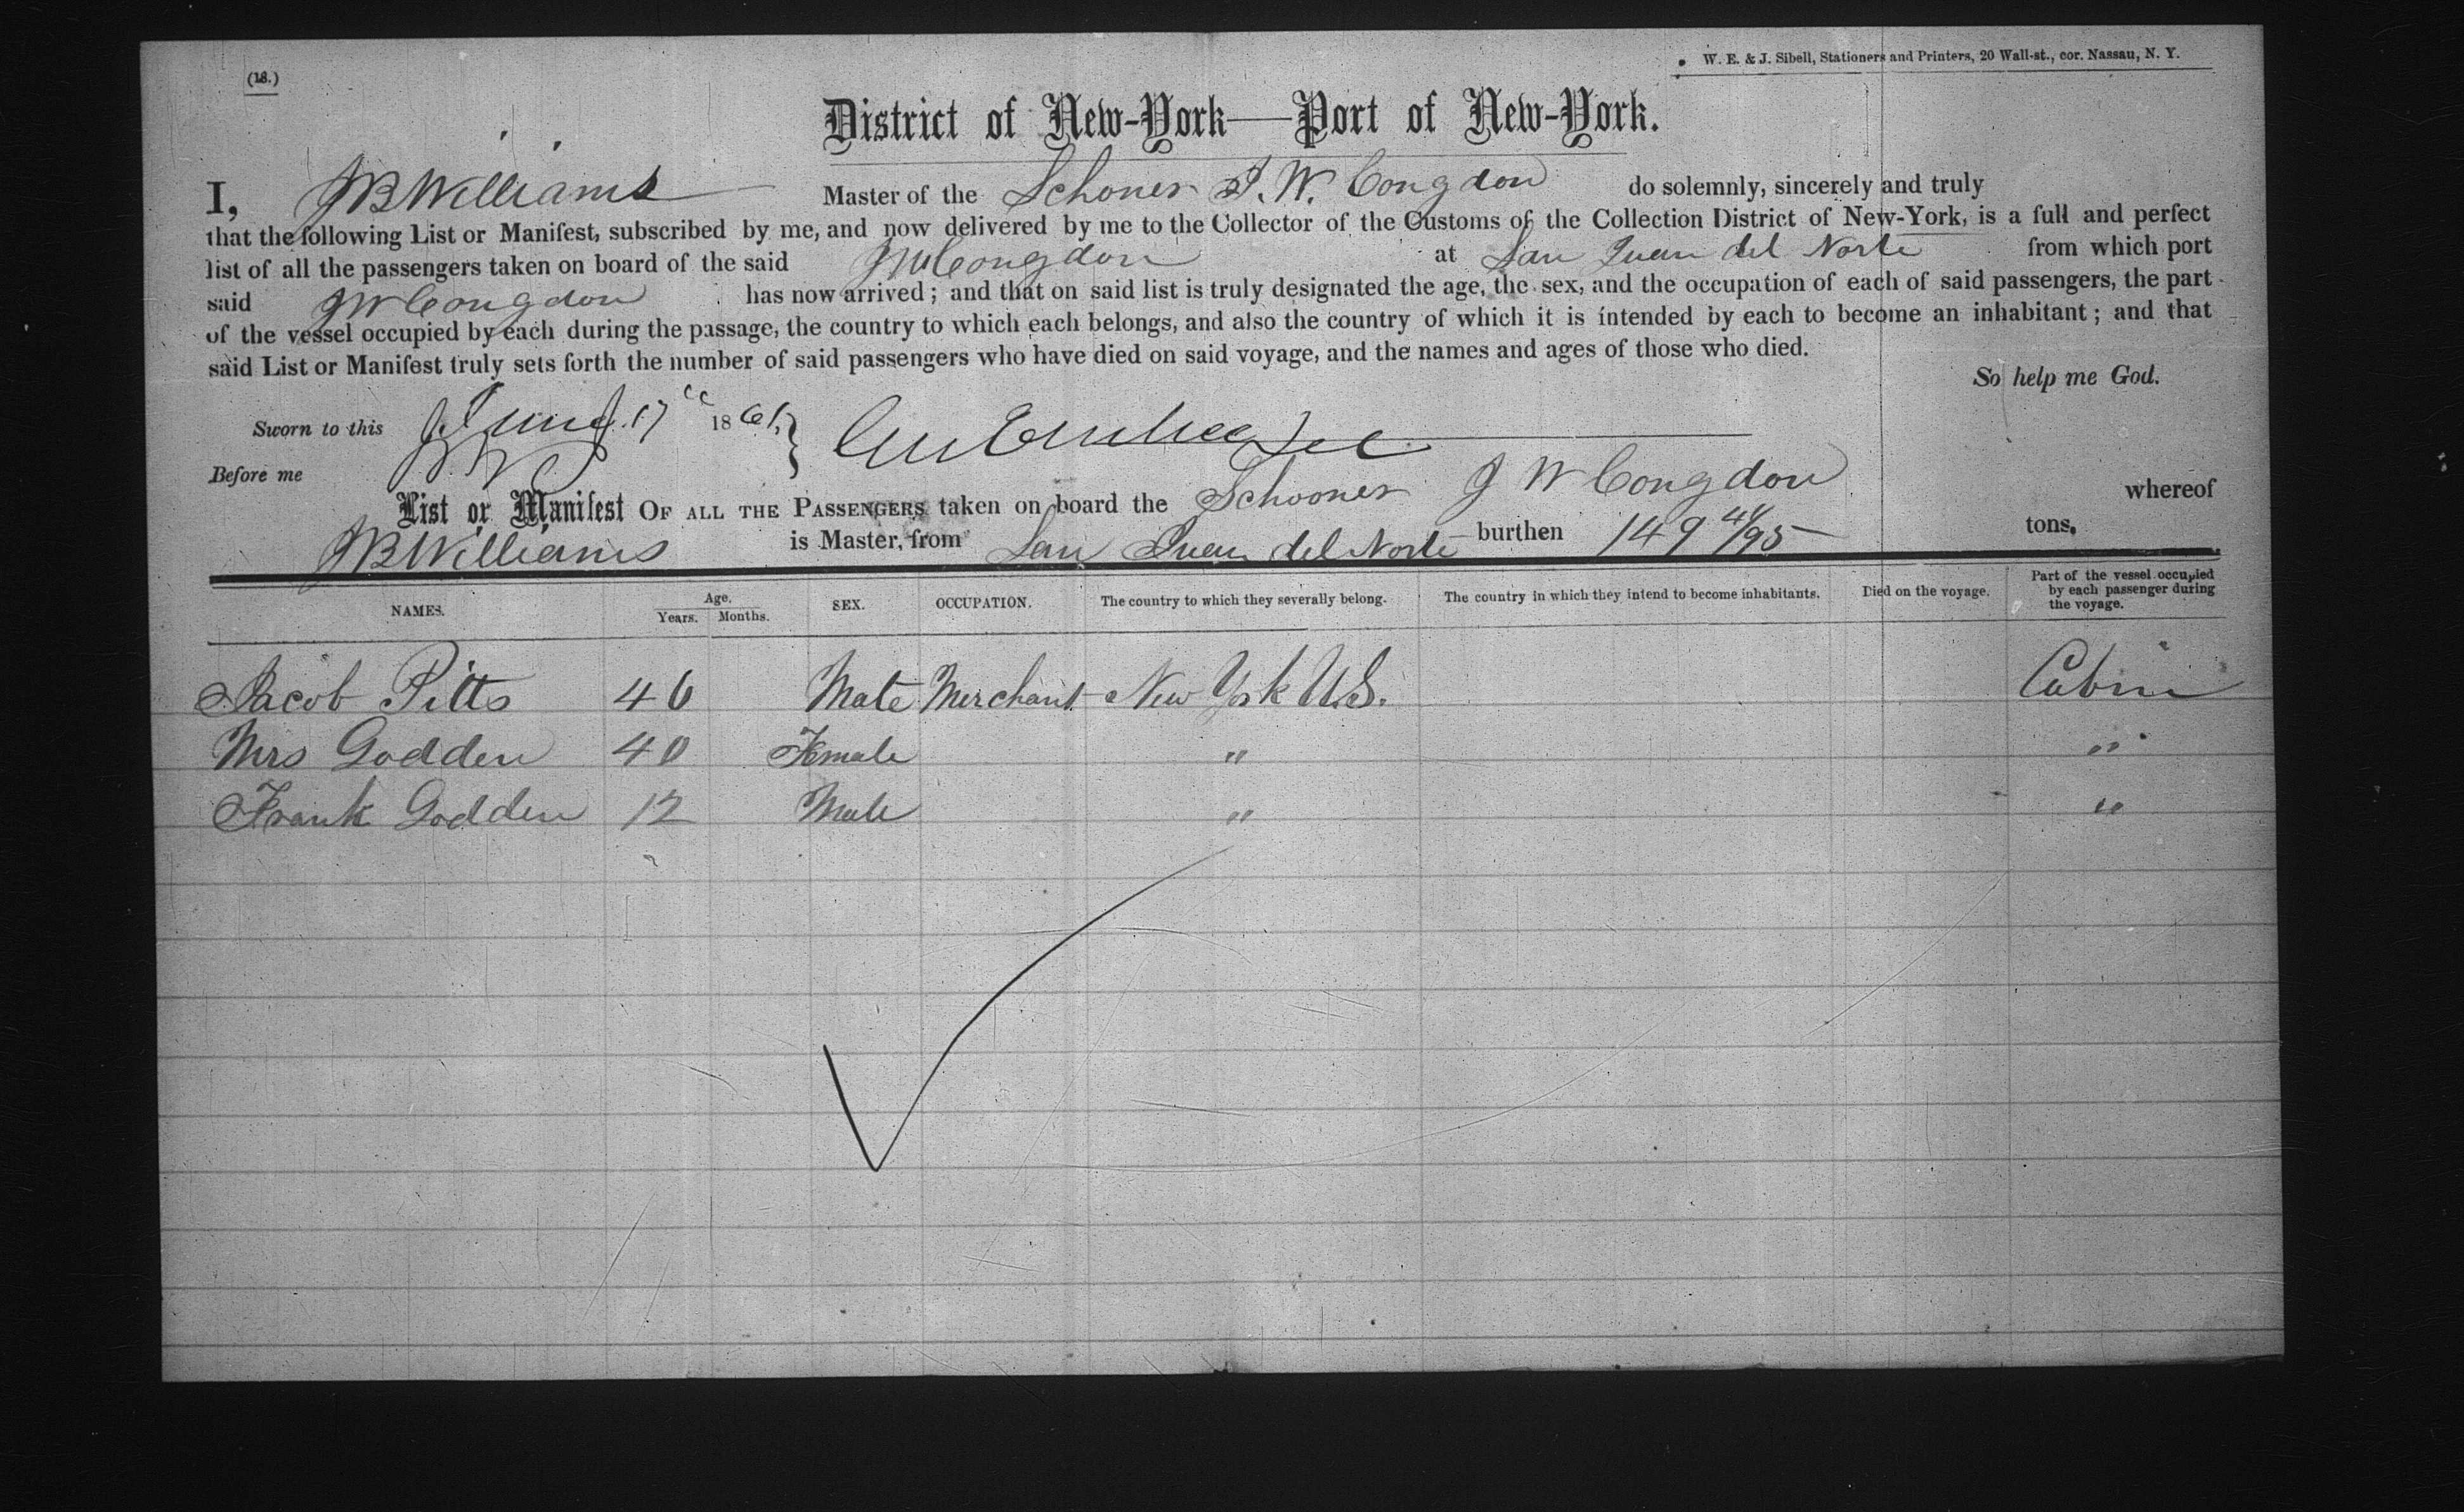 (18.)
W. E. & J. Sibell, Stationers and Printers, 20 Wall-st., cor. Nassau, N. Y.
District of New-York—Port of New-York.
I, JB Williams Master of the Schoner J. W. Congdon do solemnly, sincerely and truly
that the following List or Manifest, subscribed by me, and now delivered by me to the Collector of the Customs of the Collection District of New-York, is a full and perfect
list of all the passengers taken on board of the said JW Congdon at San Juan del Norte from which port
said JW Congdon has now arrived; and that on said list is truly designated the age, the sex, and the occupation of each of said passengers, the part
of the vessel occupied by each during the passage, the country to which each belongs, and also the country of which it is intended by each to become an inhabitant; and that
said List or Manifest truly sets forth the number of said passengers who have died on said voyage, and the names and ages of those who died.
So help me God.
Sworn to this June 17 1861,
Before me
List or Manifest OF ALL THE PASSENGERS taken on board the Schooner J W Congdon whereof
JB Williams is Master, from San Juan del Norte burthen 149 41/95 tons.
NAMES. Age. Years. Months. SEX. OCCUPATION. The country to which they severally belong. The country in which they intend to become inhabitants. Died on the voyage. Part of the vessel occupied by each passenger during the voyage.
Jacob Pitts 46 Male Merchant New York U.S. Cabin
Mrs Godden 40 Female " "
Frank Godden 12 Male " "